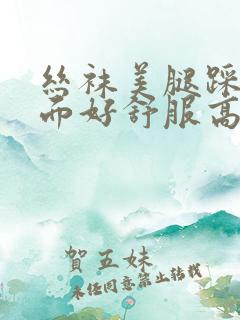 絲袜美腿踩
而好舒服高
賀五妹
未经同意禁止转载